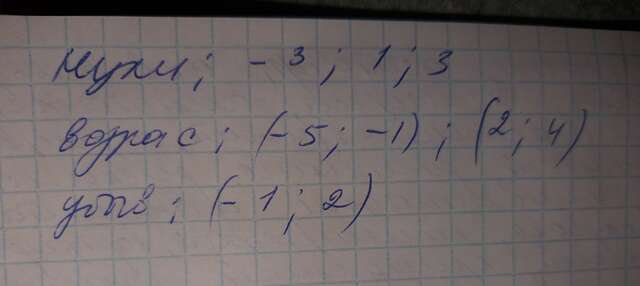 нули; -3; 1; 3
возрас; (-5; -1); (2; 4)
убыв; (-1; 2)